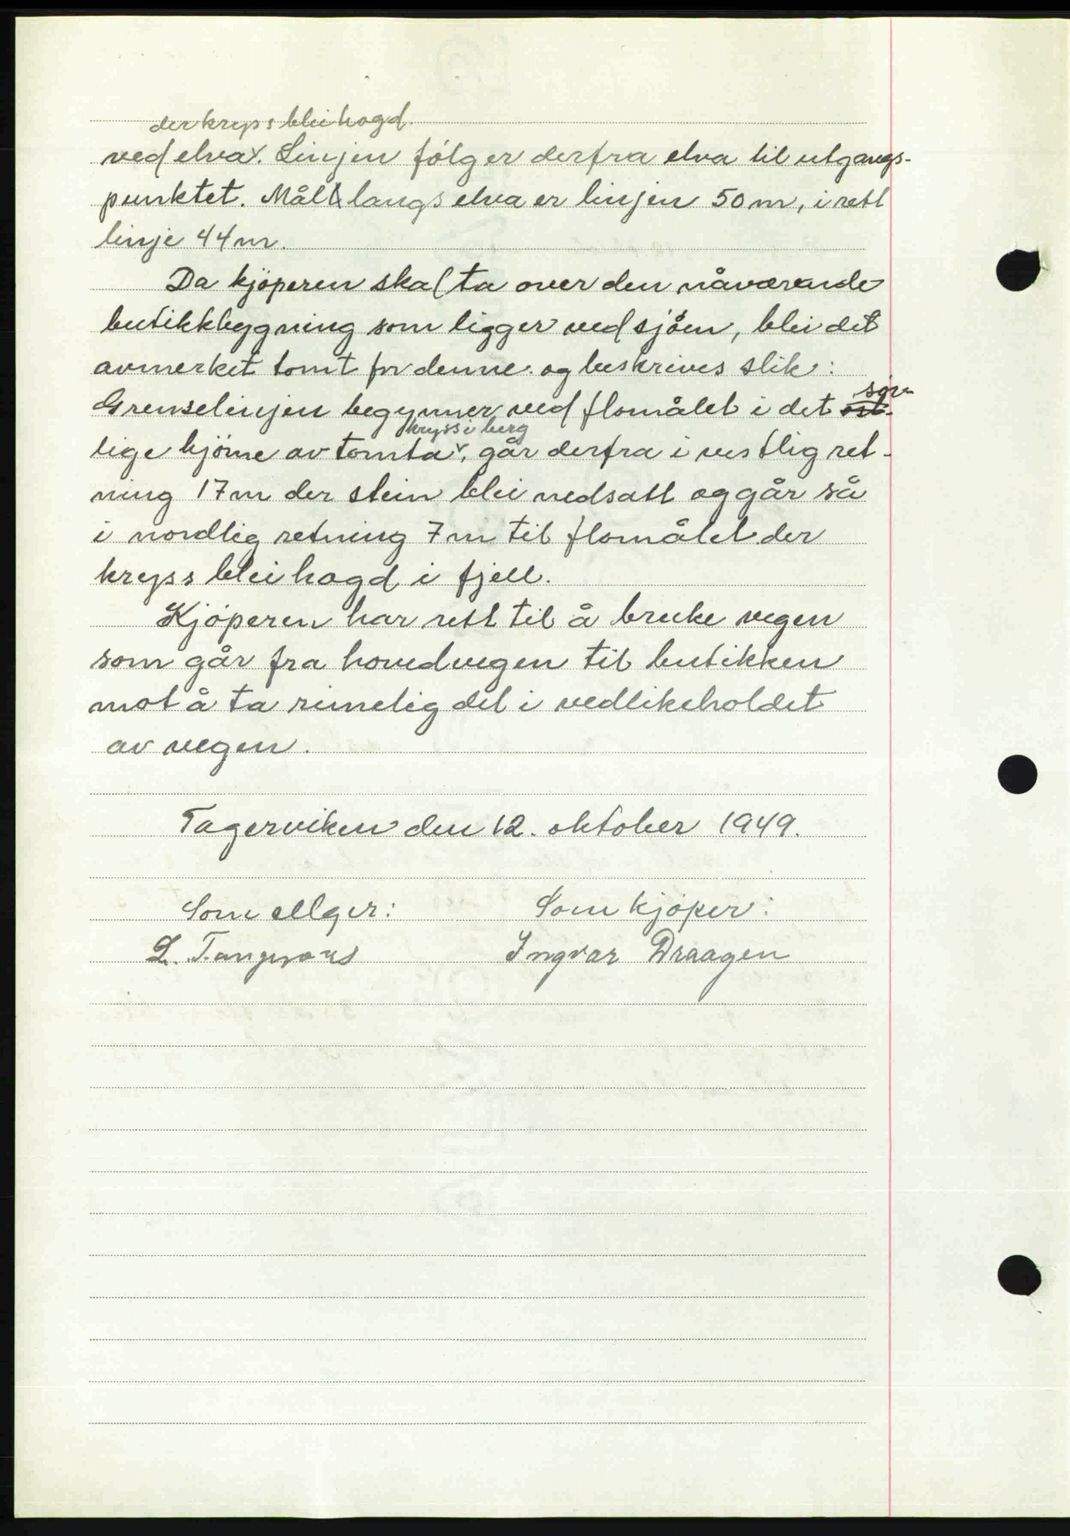 der kryss blei hogd.
ved elva˅. Linjen følger derfra elva til utgangs-
punktet. Målt langs elva er linjen 50 m, i rett
linje 44 m.
Da kjøperen skal ta over den nåværende
butikkbygning som ligger ved sjøen, blei det
avmerket tomt for denne og beskrives slik:
sør-
Grenselinjen begynner ved flomålet i det øst-
kryss i berg
lige hjørne av tomta˅, går derfra i vestlig ret-
ning 17 m der stein blei nedsatt og går så
i nordlig retning 7 m til flomålet der
kryss blei hogd i fjell.
Kjøperen har rett til å bruke vegen
som går fra hovedvegen til butikken
mot å ta rimelig del i vedlikeholdet
av vegen.
Tagerviken den 12. oktober 1949.
Som selger: Som kjøper:
L. Ingvar Draagen